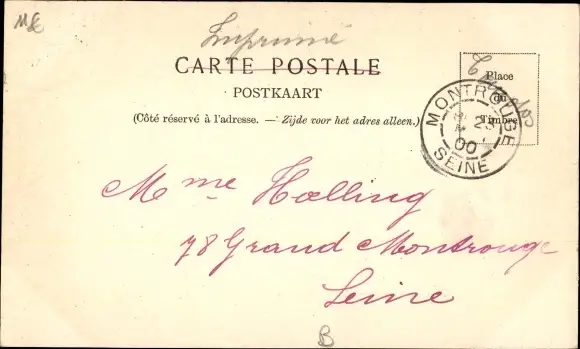 Imprimé
CARTE POSTALE
POSTKAART
(Côté réservé à l'adresse. — Zijde voor het adres alleen.)
Place
du
Timbre
MONTROUGE
23
00
SEINE
Mme Hœlling
78 Grand Montrouge
Seine
B